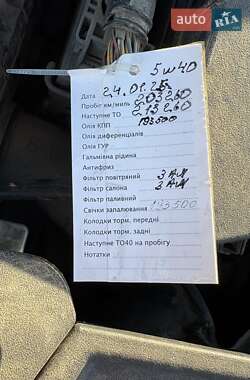 AUTO RIA
5W40
Дата 24.01.25
Пробіг км/миль 203260
Наступне ТО 213260
Олія КПП 193500
Олія диференціалів
Олія ГУР
Гальмівна рідина
Антифриз
Фільтр повітряний Зам
Фільтр салона Зам
Фільтр паливний
Свічки запалювання 193500
Колодки торм. передні
Колодки торм. задні
Наступне ТО40 на пробігу
Нотатки